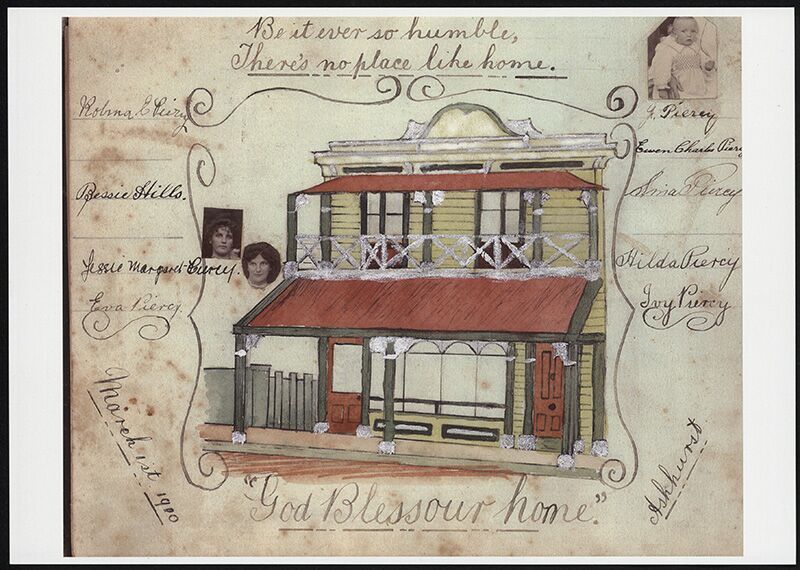 Be it ever so humble,
There's no place like home.
Robina E Piercy
Bessie Hills.
Jessie Margaret Piercy.
Eva Piercy.
J. Piercy
Ewen Charles Piercy
Piercy
Hilda Piercy
Ivy Piercy
March 1st 1900
Ashhurst
"God Bless our home."